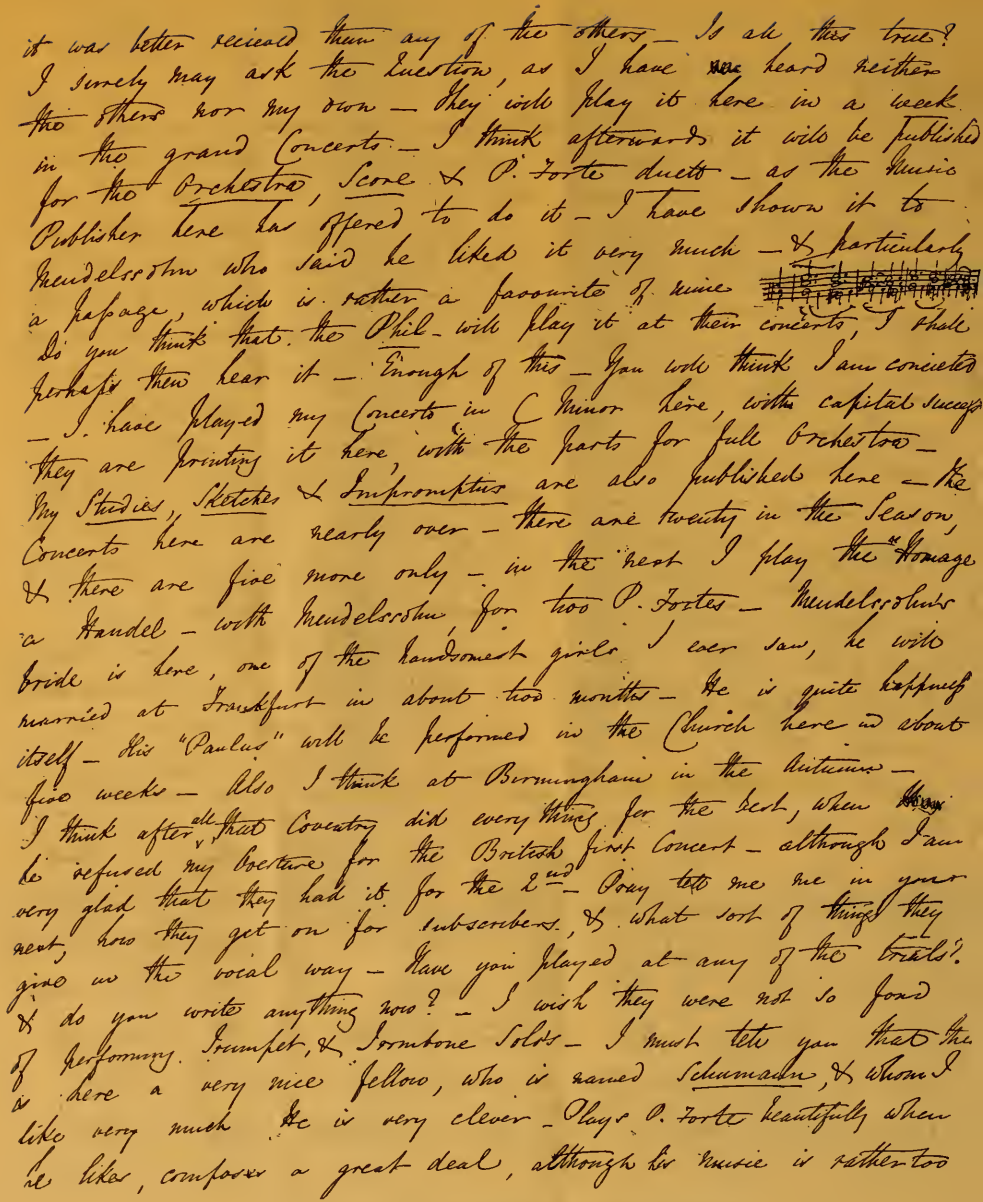 it was better recieved than any of the others – Is all this true?
I surely may ask the Question, as I have heard neither
the others nor my own – They will play it here in a week
in the grand Concerts. – I think afterwards it will be published
for the Orchestra, Score & P. Forte duett – as the Music
Publisher here has offered to do it – I have shown it to
Mendelssohn who said he liked it very much – & particularly
a passage, which is rather a favourite of mine
Do you think that the Phil– will play it at their concerts, I shall
perhaps then hear it – Enough of this – You will think I am concieted
– I have played my Concerto in C Minor here, with capital success
they are printing it here, with the parts for full Orchestra –
My Studies, Sketches & Impromptus are also published here – The
Concerts here are nearly over – there are twenty in the Season,
& there are five more only – in the next I play the "Homage
a Handel – with Mendelssohn, for two P. Fortes – Mendelssohn's
bride is here, one of the handsomest girls I ever saw, he will
married at Frankfurt in about two months – He is quite happiness
itself – His "Paulus" will be performed in the Church here in about
five weeks – Also I think at Birmingham in the Autumn –
I think after all, that Coventry did every thing for the best, when
he refused my Overture for the British first Concert – although I am
very glad that they had it for the 2nd – Pray tell me me in your
next, how they get on for subscribers, & what sort of things they
give in the vocal way – Have you played at any of the trials?
& do you write anything now? – I wish they were not so fond
of performing Trumpet, & Trombone Solos – I must tell you that the
is here a very nice fellow, who is named Schumann, & whom I
like very much He is very clever – Plays P. Forte beautifully when
he likes, composes a great deal, although his music is rather too